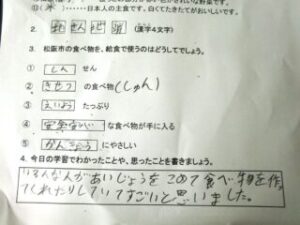 (米)……日本人の主食です。白くてたきたてがおいしいです。
2. 地さん地消 (漢字4文字)
3. 松阪市の食べ物を、給食で使うのはどうしてでしょう。
① しん せん
② きせつ の食べ物(しゅん)
③ えいよう たっぷり
④ 安全安心 な食べ物が手に入る
⑤ かんきょう にやさしい
4. 今日の学習でわかったことや、思ったことを書きましょう。
いろんな人があいじょうをこめて食べ物を作
てくれたりしていてすごいと思いました。